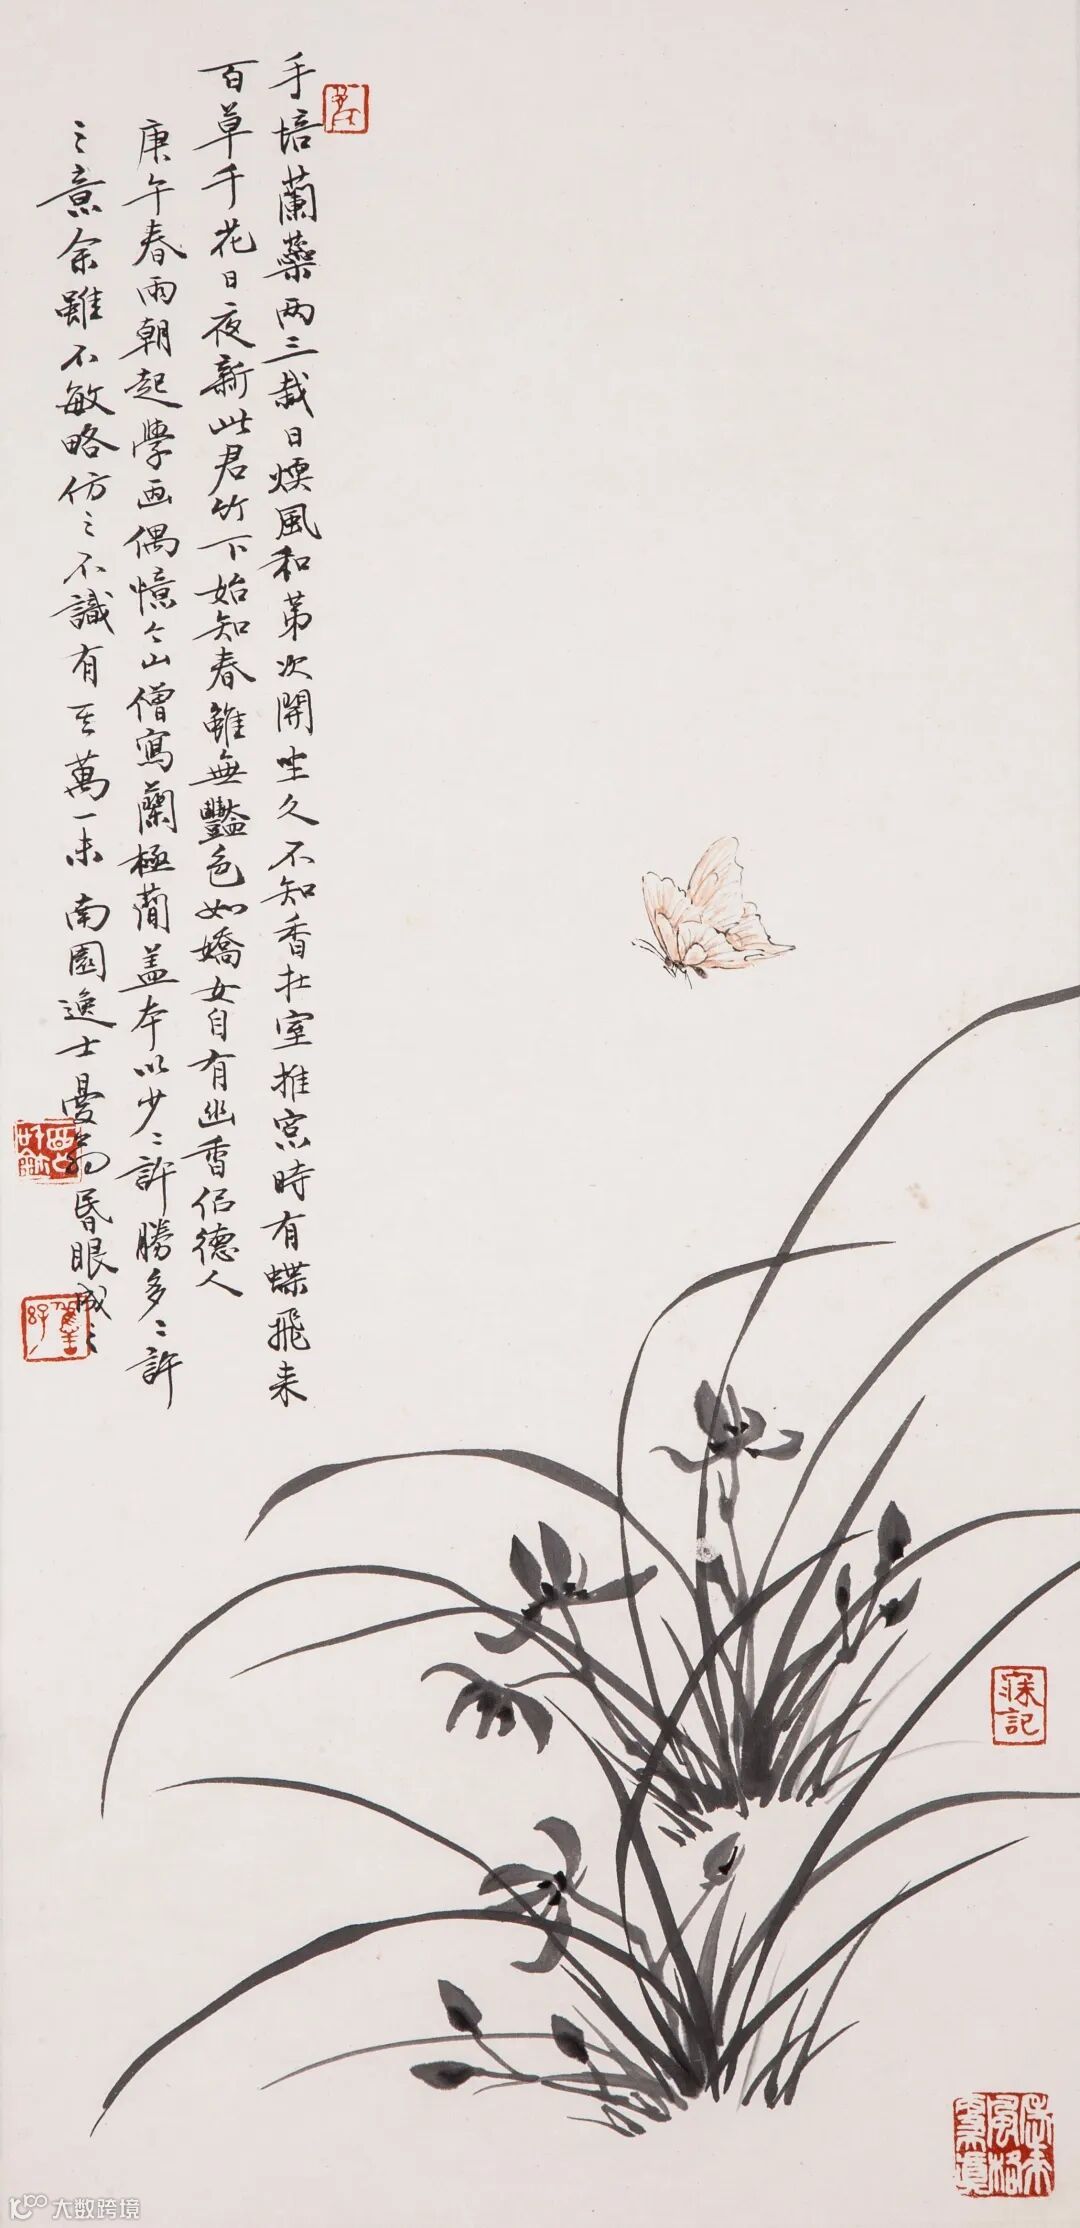 手培蘭蘂兩三栽日煗風和第次開坐久不知香在室推窓時有蝶飛来
百草千花日夜新此君竹下始知春雖無豔色如嬌女自有幽香似德人
庚午春雨朝起學画偶憶个山僧寫蘭極蕳盖本以少〻許勝多〻許
之意余雖不敏略仿之不識有其萬一未 南園逸士 翁昏眼成之
寐記
大数跨境